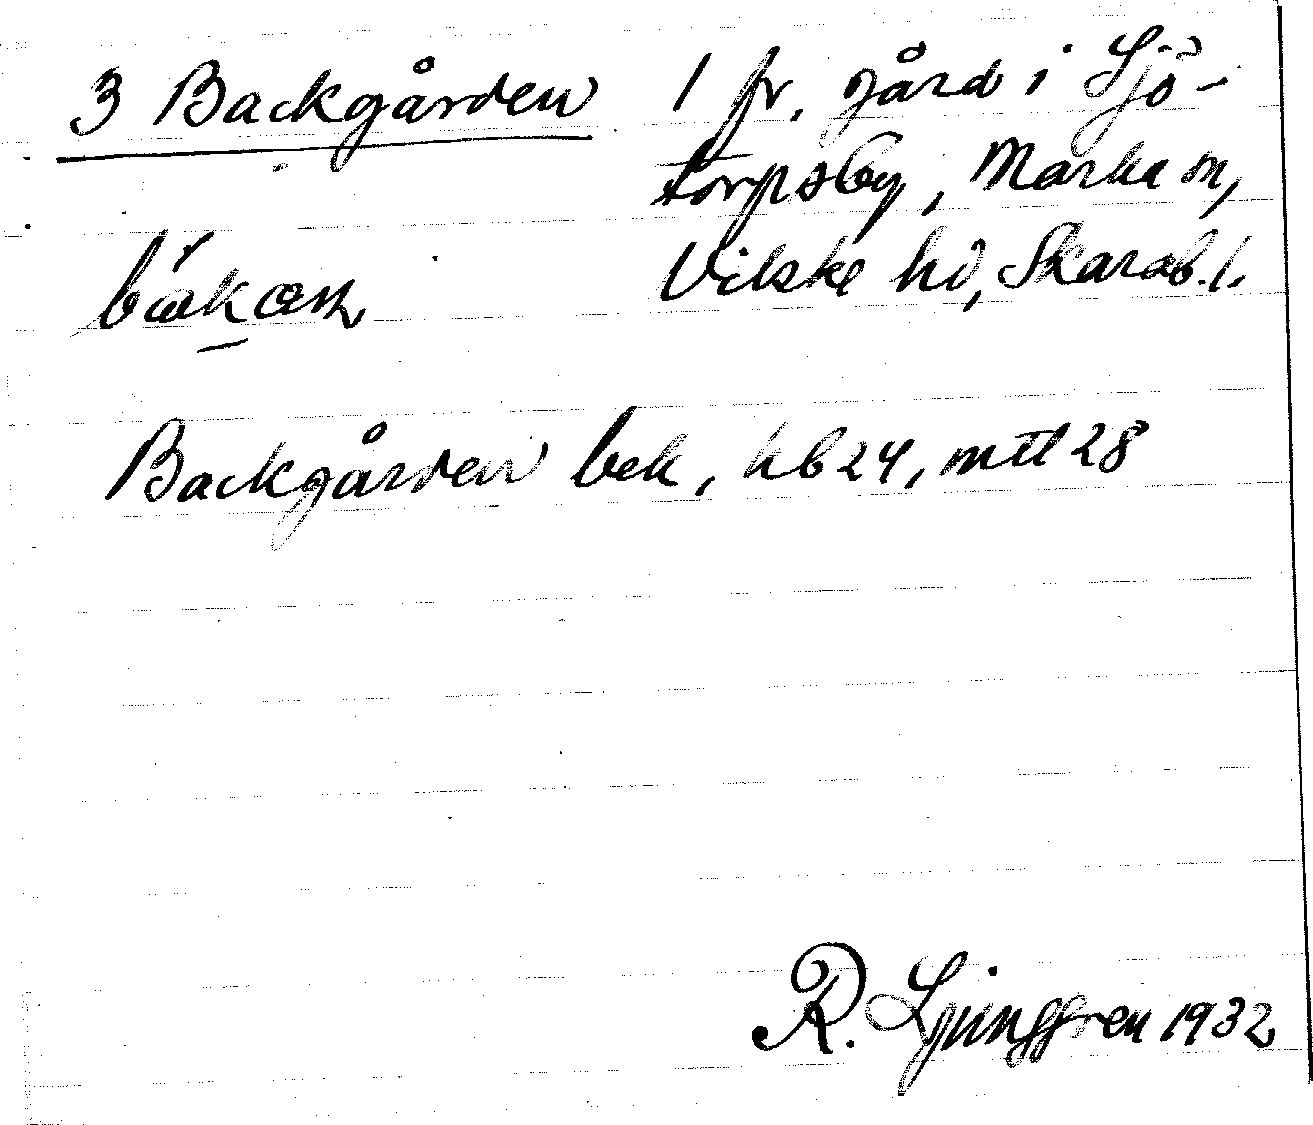 3 Backgården 1 fr. gård i Sjö-
torpsby, Marka sn,
Vilske hd, Skarab. l.
Backgården bek, hb 24, mtl 28
R. Ljunggren 1932